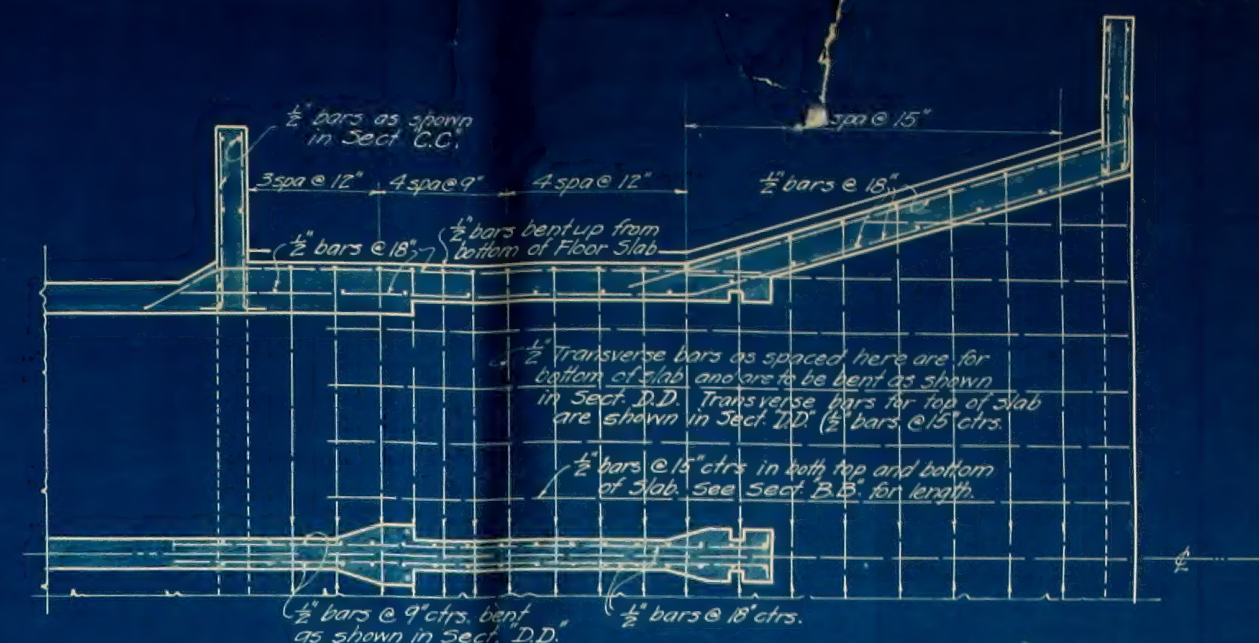 ½" bars as shown
in Sect "C.C."
spa @ 15"
3 spa @ 12"
4 spa @ 9"
4 spa @ 12"
½" bars @ 18"
½" bars @ 18"
½" bars bent up from
bottom of Floor Slab
½" Transverse bars as spaced here are for
bottom of slab and are to be bent as shown
in Sect. D.D. Transverse bars for top of slab
are shown in Sect. "D.D." (½" bars @ 15" ctrs.
½" bars @ 15" ctrs in both top and bottom
of Slab. See Sect. "B.B." for length.
℄
½" bars @ 9" ctrs. bent
as shown in Sect. "D.D."
½" bars @ 18" ctrs.